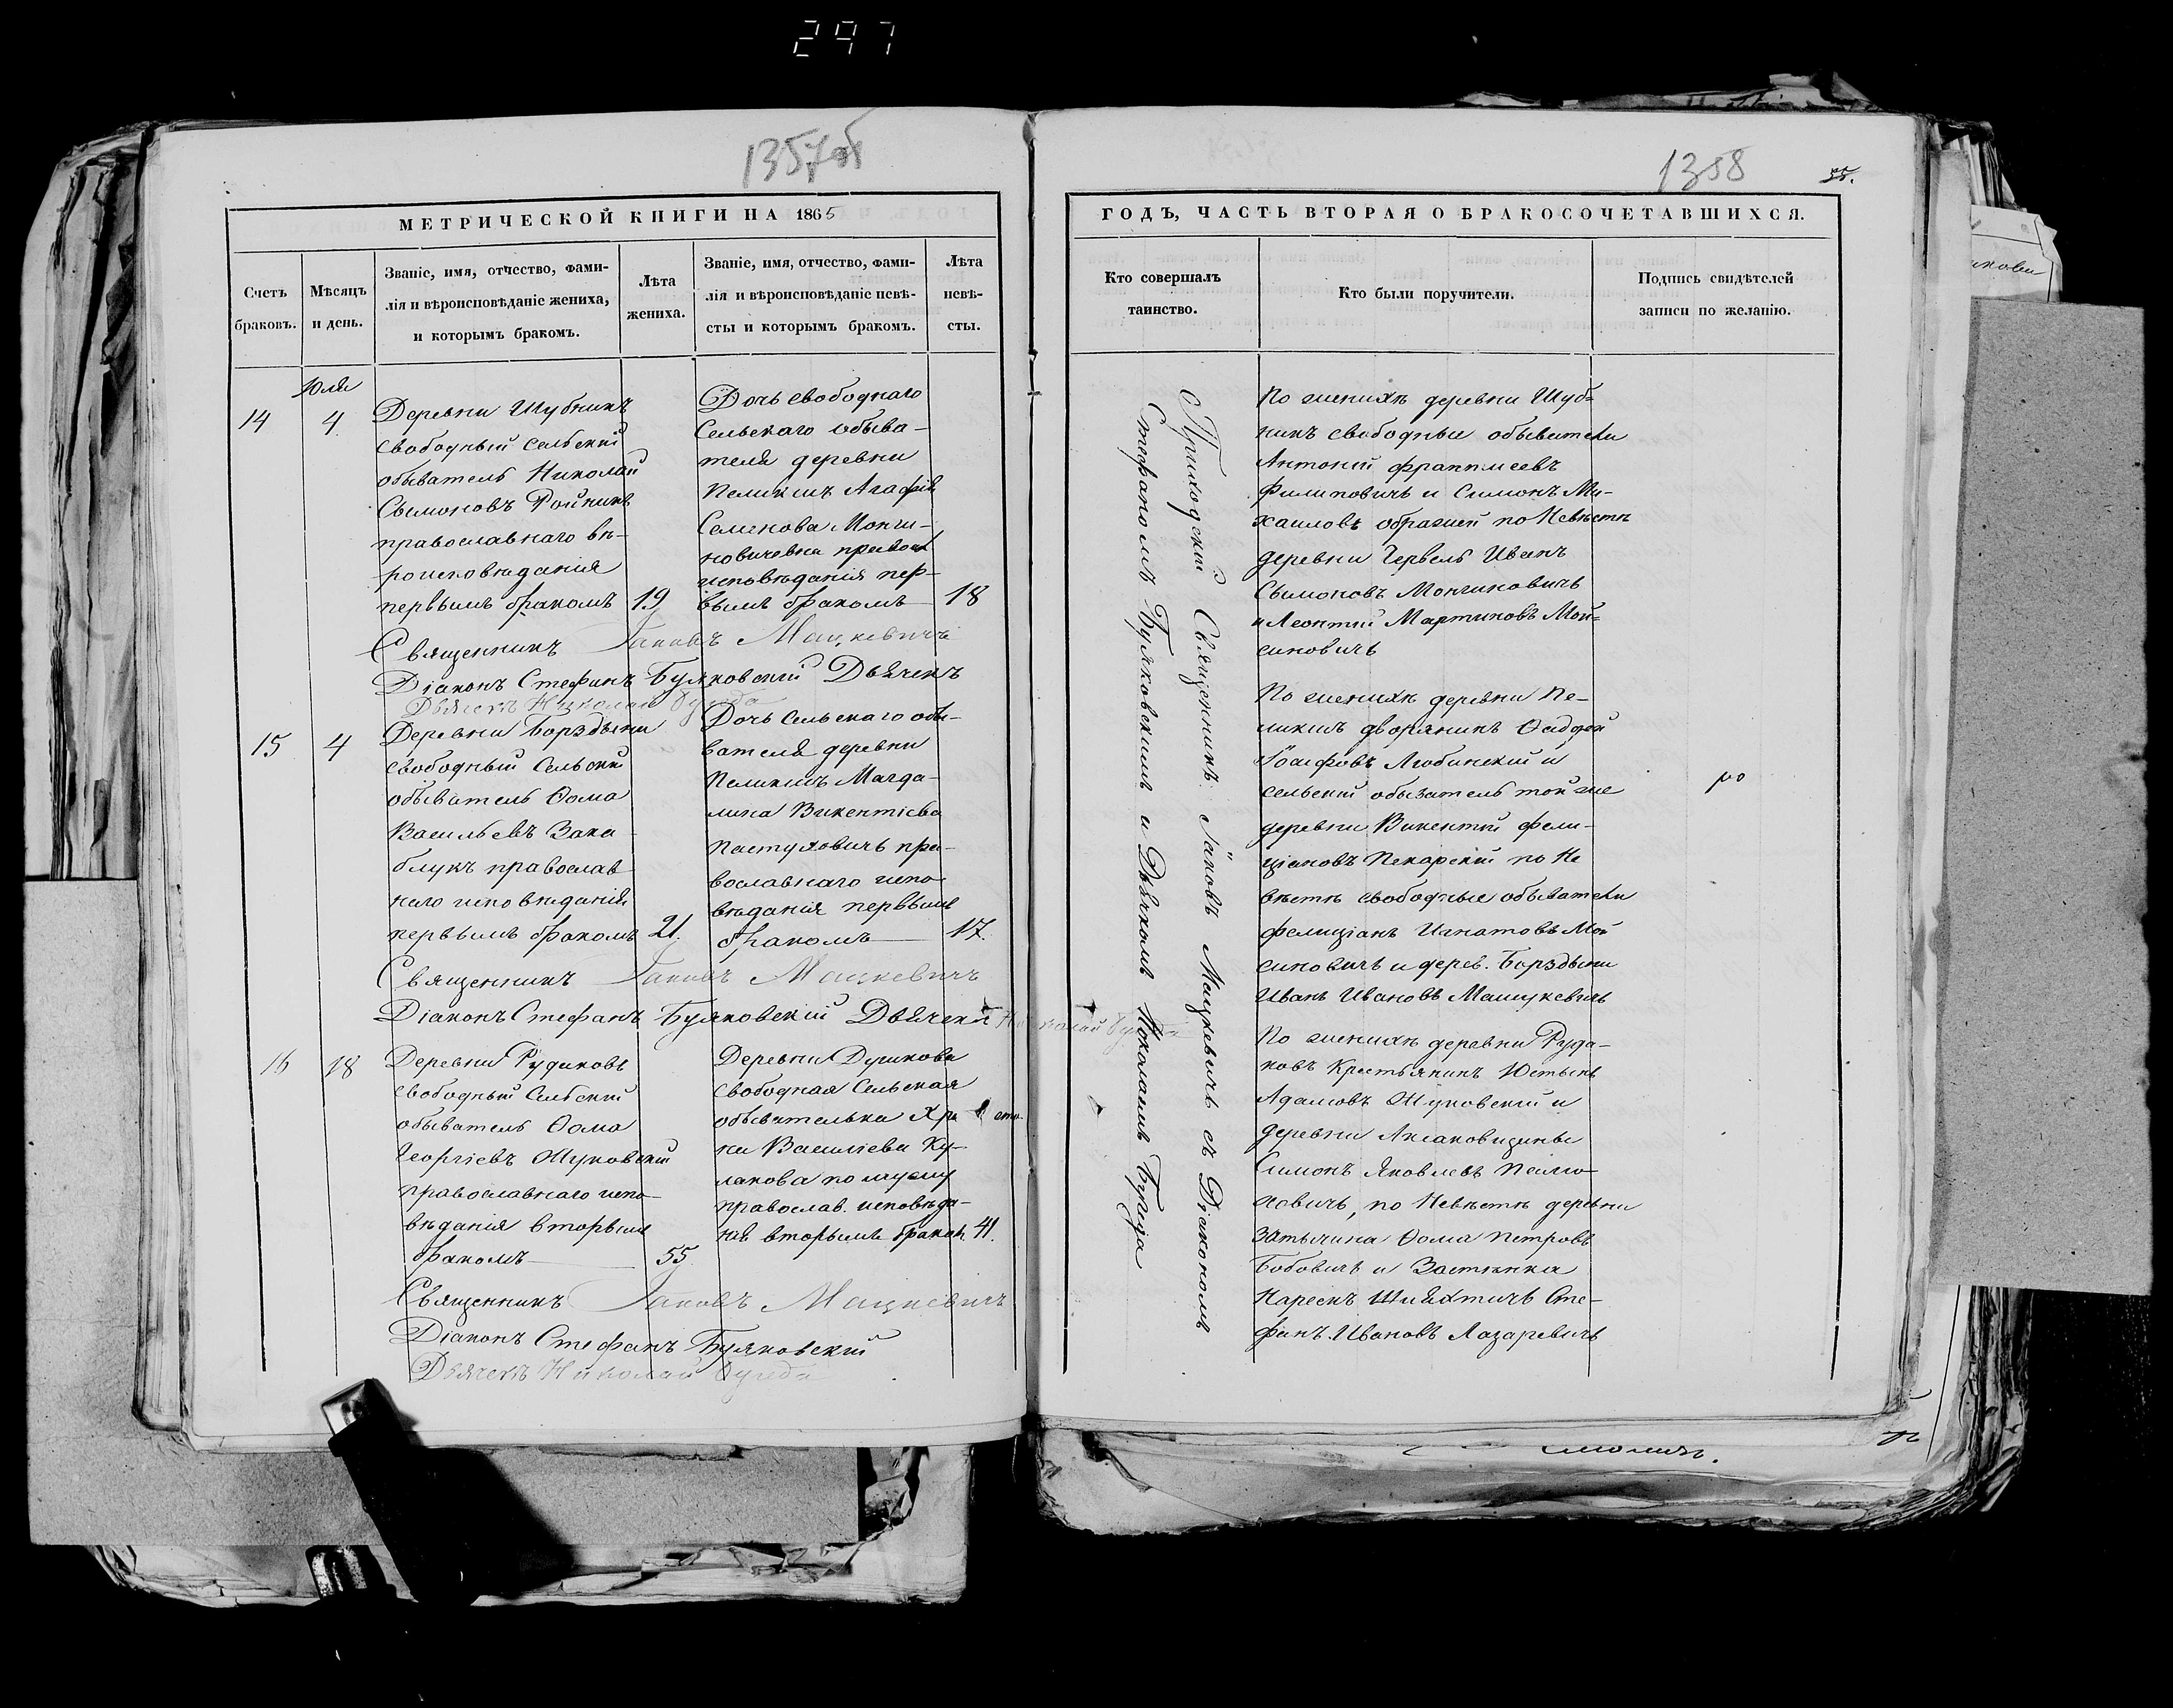 297
1357об
МЕТРИЧЕСКОЙ КНИГИ НА 1865
Счетъ браковъ.
Мѣсяцъ и день.
Званіе, имя, отчество, фами-
лія и вѣроисповѣданіе жениха,
и которымъ бракомъ.
Лѣта жениха.
Званіе, имя, отчество, фами-
лія и вѣроисповѣданіе невѣ-
сты и которымъ бракомъ.
Лѣта невѣ-
сты.
Юля
14
4
Деревни Шубникъ
свободный сельскій
обыватель Николай
Сымоновъ Ройникъ
православнаго вѣ-
роисповѣданія
первымъ бракомъ
19
Дочь свободнаго
Сельскаго обыва-
теля деревни
Пеликшъ Агафія
Семенова Мончи-
новичевна правосл
исповѣданія пер-
вымъ бракомъ
18
Священникъ Іаковъ Мацкевичъ
Діаконъ Стефанъ Буяковскій Дьячекъ
Дьячекъ Николай
15
4
Деревни Борздыни
свободный Сельскій
обыватель Ѳома
Васильевъ Зака-
блукъ православ
наго исповѣданія
первымъ бракомъ
21.
Дочь Сельскаго обы-
вателя деревни
Пеликшъ Магда-
лина Викентіева
Пастуховичъ пра-
вославнаго испо
вѣданія первымъ
бракомъ
17.
Священникъ Іаковъ Мацкевичъ
Діаконъ Стефанъ Буяковскій Дьячекъ Николай
16
18
Деревни Рудаковъ
свободный Сельскій
обыватель Ѳома
Георгіевъ Жуковскій
православнаго испо-
вѣданія вторымъ
бракомъ
55
Деревни Душкова
свободная Сельская
обывателька
Василіева Ку-
лакова по мужу
православ. исповѣда-
нія вторымъ браком
41.
Священникъ Іаковъ Мацкевичъ
Діаконъ Стефанъ Буяковскій
Дьячекъ Николай
1358
55.
ГОДЪ, ЧАСТЬ ВТОРАЯ О БРАКОСОЧЕТАВШИХСЯ.
Кто совершалъ
таинство.
Кто были поручители.
Подпись свидѣтелей
записи по желанію.
Приходскій Священникъ Іаковъ Мацкевичъ съ Діакономъ
Стефаномъ Буяковскимъ и Дьячкомъ Николаемъ
По женихѣ деревни Шуб=
никъ свободные обыватели
Антоній
Филиповичъ и Симонъ Ми-
хаиловъ по Невѣстѣ
деревни Червель Иванъ
Сымоновъ Мончиновичъ
и Леонтій Мартиновъ Мой=
синовичъ
По женихѣ деревни Пе-
ликшъ дворянинъ
Іосифовъ Любинскій и
сельскій обыватель той же
деревни Викентій Фели-
ціановъ Пекарскій по Не
вѣстѣ свободные обыватели
Фелиціанъ Игнатовъ Мой
синовичъ и дерев. Борздыни
Иванъ Ивановъ Машукевичъ
По женихѣ деревни Руда-
ковъ Крестьянинъ Юстынъ
Адамовъ Жуковскій и
деревни Аксаковщины
Симонъ Яковлевъ
по Невѣстѣ деревни
Затычина Ѳома Петровъ
Бобовичъ и Застѣнка
Сте-
фанъ Ивановъ Лазаревичъ